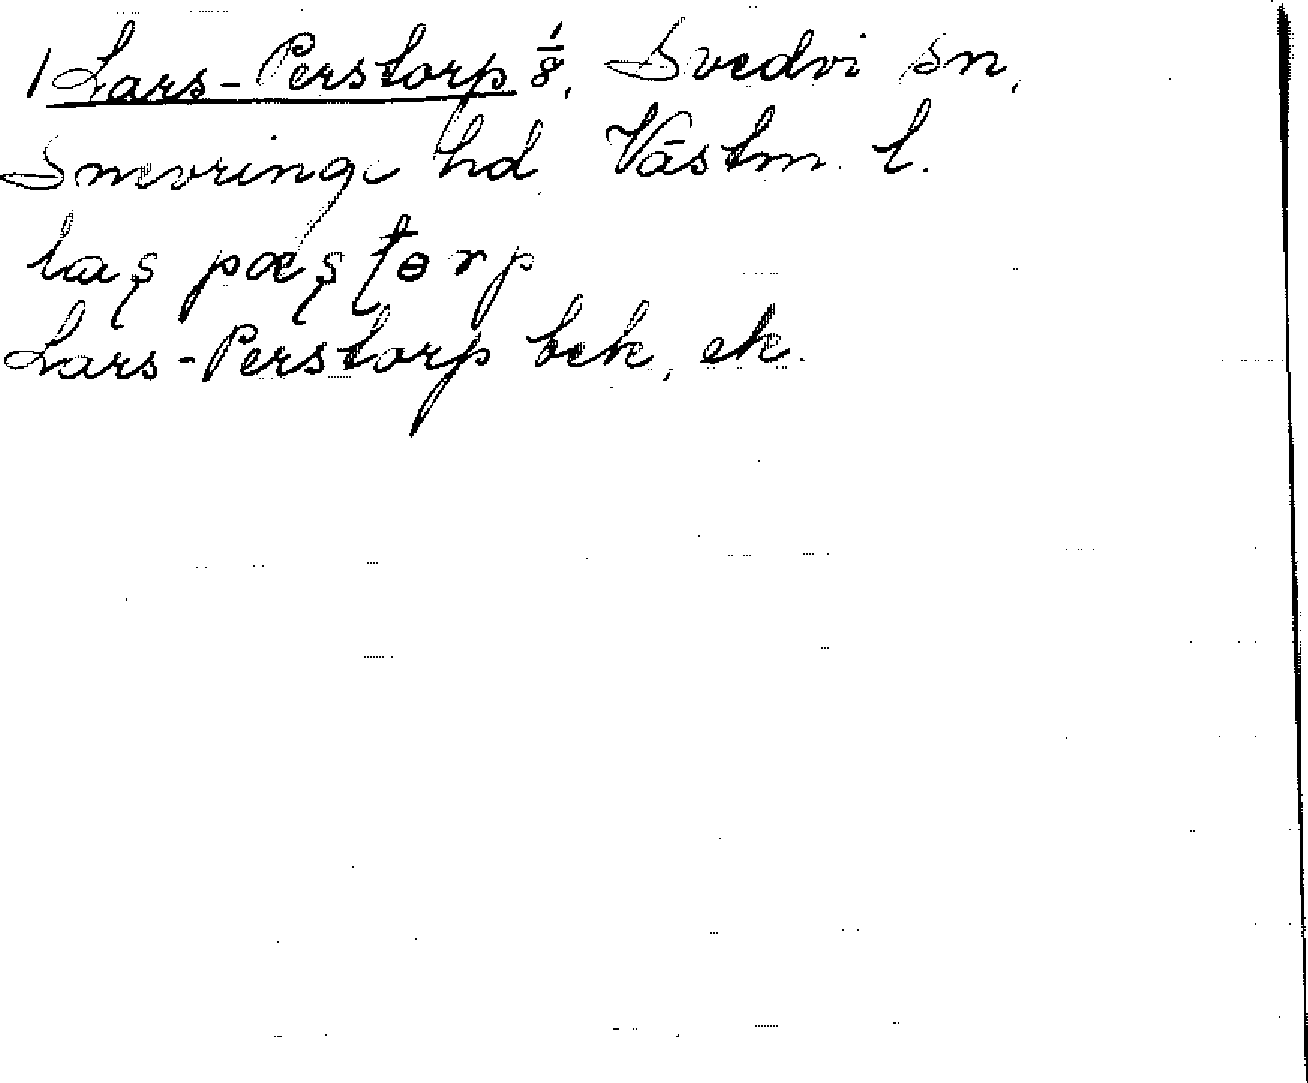 1 Lars-Perstorp 1/8, Svedvi sn,
Snevringe hd Västm. l.
laʂ pæʂʈɵrp
Lars-Perstorp bek, ek.